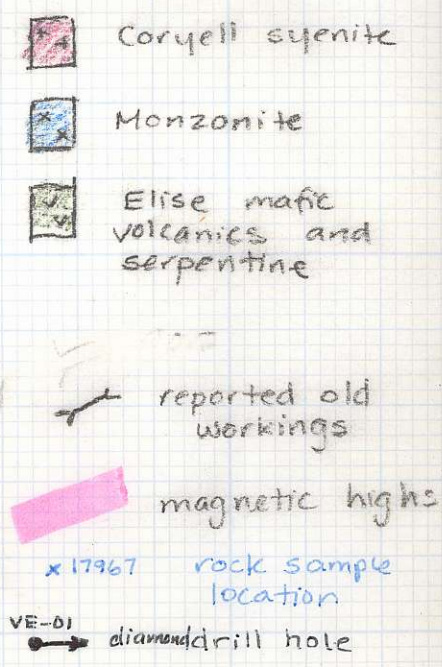 Coryell syenite
Monzonite
Elise mafic
volcanics and
serpentine
reported old
workings
magnetic highs
x 17967 rock sample
location
VE-01
diamond drill hole